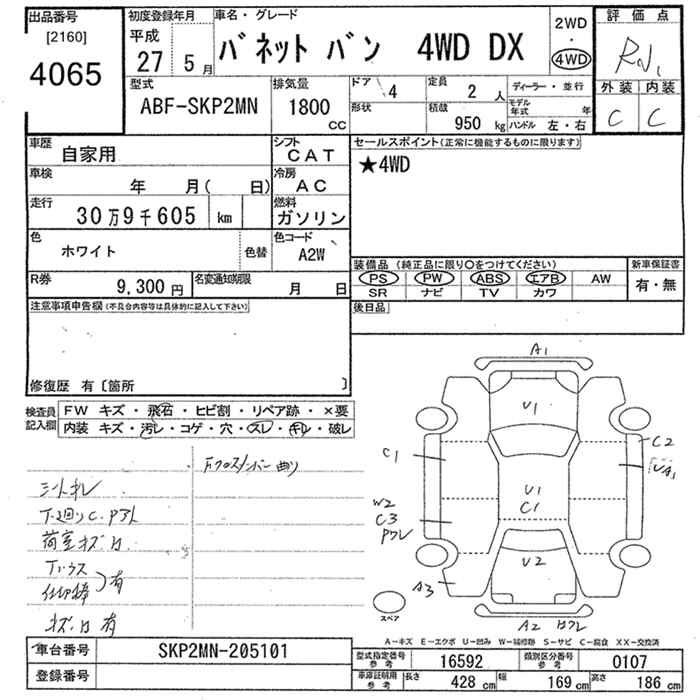 出品番号 初度登録年月 車名・グレード 2WD 評価点
[2160] 平成 バネット バン 4WD DX ・ R
4065 27 5月 4WD 外装 内装
型式 排気量 ドア 定員 ディーラー・並行 C C
ABF-SKP2MN 1800 CC 4 2人 モデル年式 年
形状 積載 950 kg ハンドル 左・右
車歴 自家用 シフト CAT セールスポイント(正常に機能するものに限ります)
車検 年 月( 日) 冷房 AC ★4WD
走行 30万9千605 km 燃料 ガソリン
色 ホワイト 色替 色コード A2W
装備品 (純正品に限り○をつけてください) 新車保証書
R券 9,300円 名変通知期限 月 日 PS PW ABS エアB AW 有・無
SR ナビ TV カワ
注意事項申告欄(不具合内容等は具体的に記入して下さい) 後日品
修復歴 有〔箇所 〕
検査員記入欄 FW キズ・飛石・ヒビ割・リペア跡・×要
内装 キズ・汚レ・コゲ・穴・スレ・切レ・破レ
Fクロスメンバー曲り
シートキレ
下廻りC.Pアト
荷室キズ凹
有
キズ凹有
A1
U1
C1 C2
UA1
U1
C1
W2
C3
Pワレ
U2
A3
A2 凹ワレ
スペア
A-キズ E-エクボ U-凹み W-補修跡 S-サビ C-腐食 XX-交換済
車台番号 SKP2MN-205101 型式指定番号参考 16592 類別区分番号参考 0107
登録番号 車庫証明用参考 長さ 428 cm 幅 169 cm 高さ 186 cm